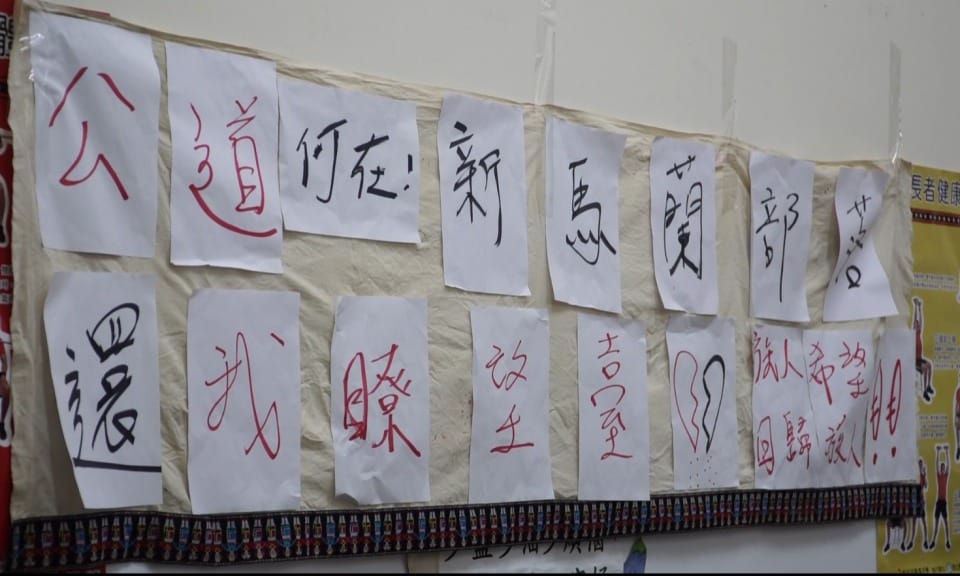 公道何在!新馬蘭部落
還我瞭望臺!!
族人希望
回歸族人!!
長者健康